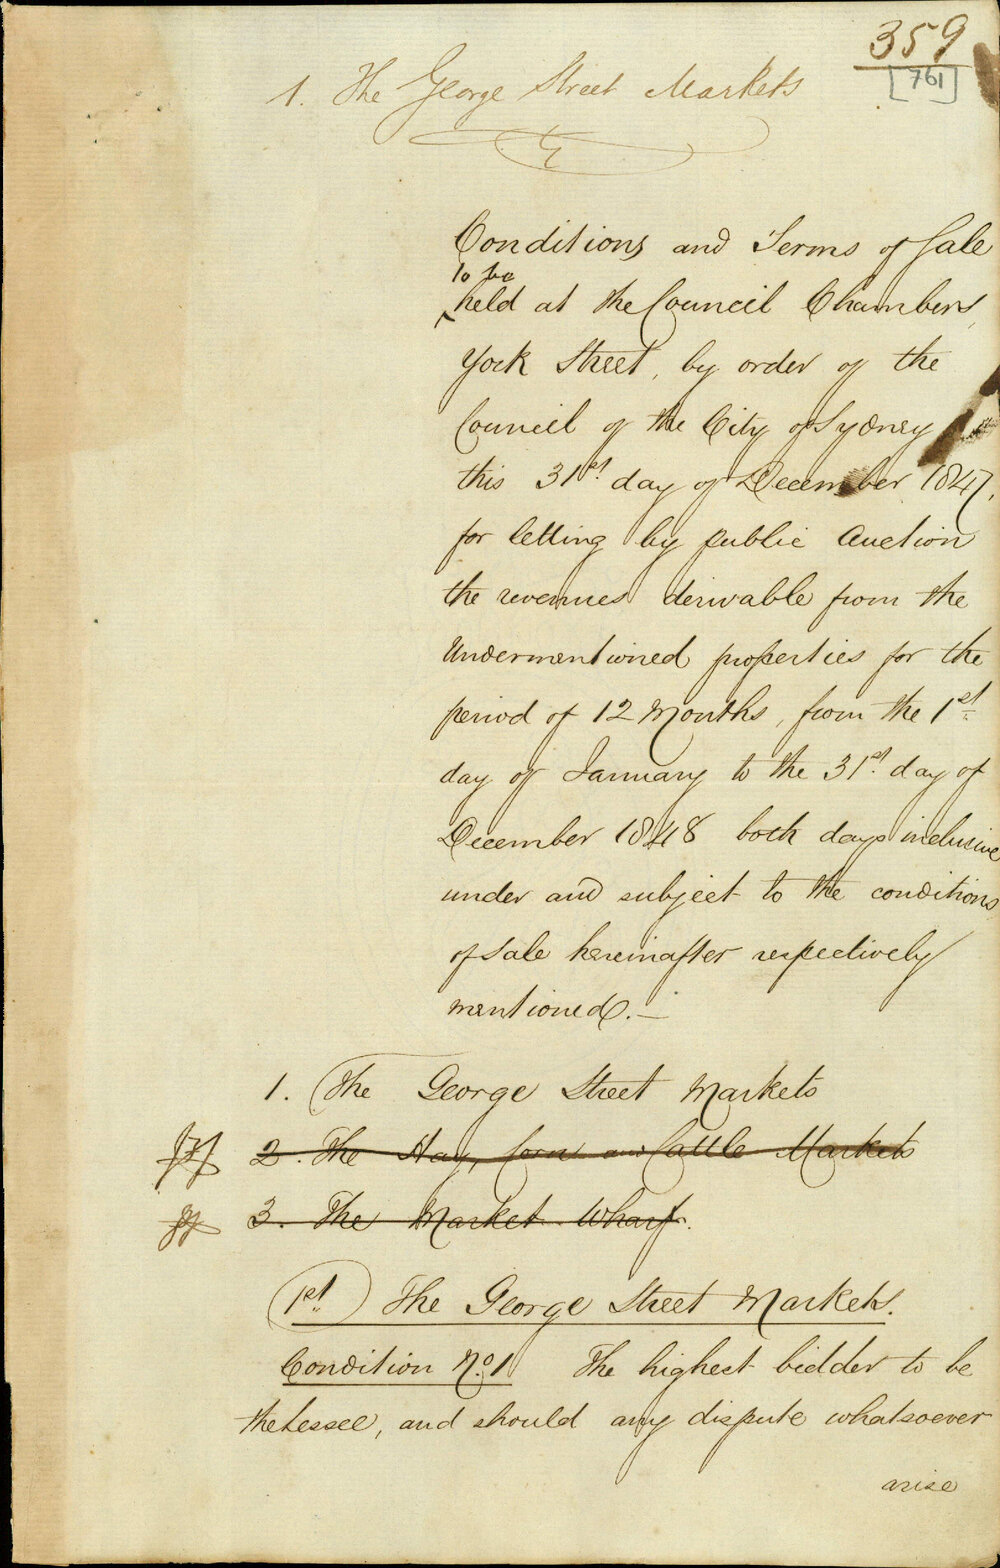 359
[761]
1. The George Street Markets
Conditions and Terms of Sale
to be
held at the Council Chambers,
York Street, by order of the
Council of the City of Sydney
this 31st. day of December 1847,
for letting by public Auction
the revenues derivable from the
Undermentioned properties for the
period of 12 Months, from the 1st.
day of January to the 31st. day of
December 1848 both days inclusive
under and subject to the conditions
of Sale hereinafter respectively
mentioned.—
1. The George Street Markets
2. The Hay, Corn and Cattle Markets
3. The Market Wharf.
1st. The George Street Markets.
Condition No. 1 The highest bidder to be
the Lessee, and should any dispute whatsoever
arise